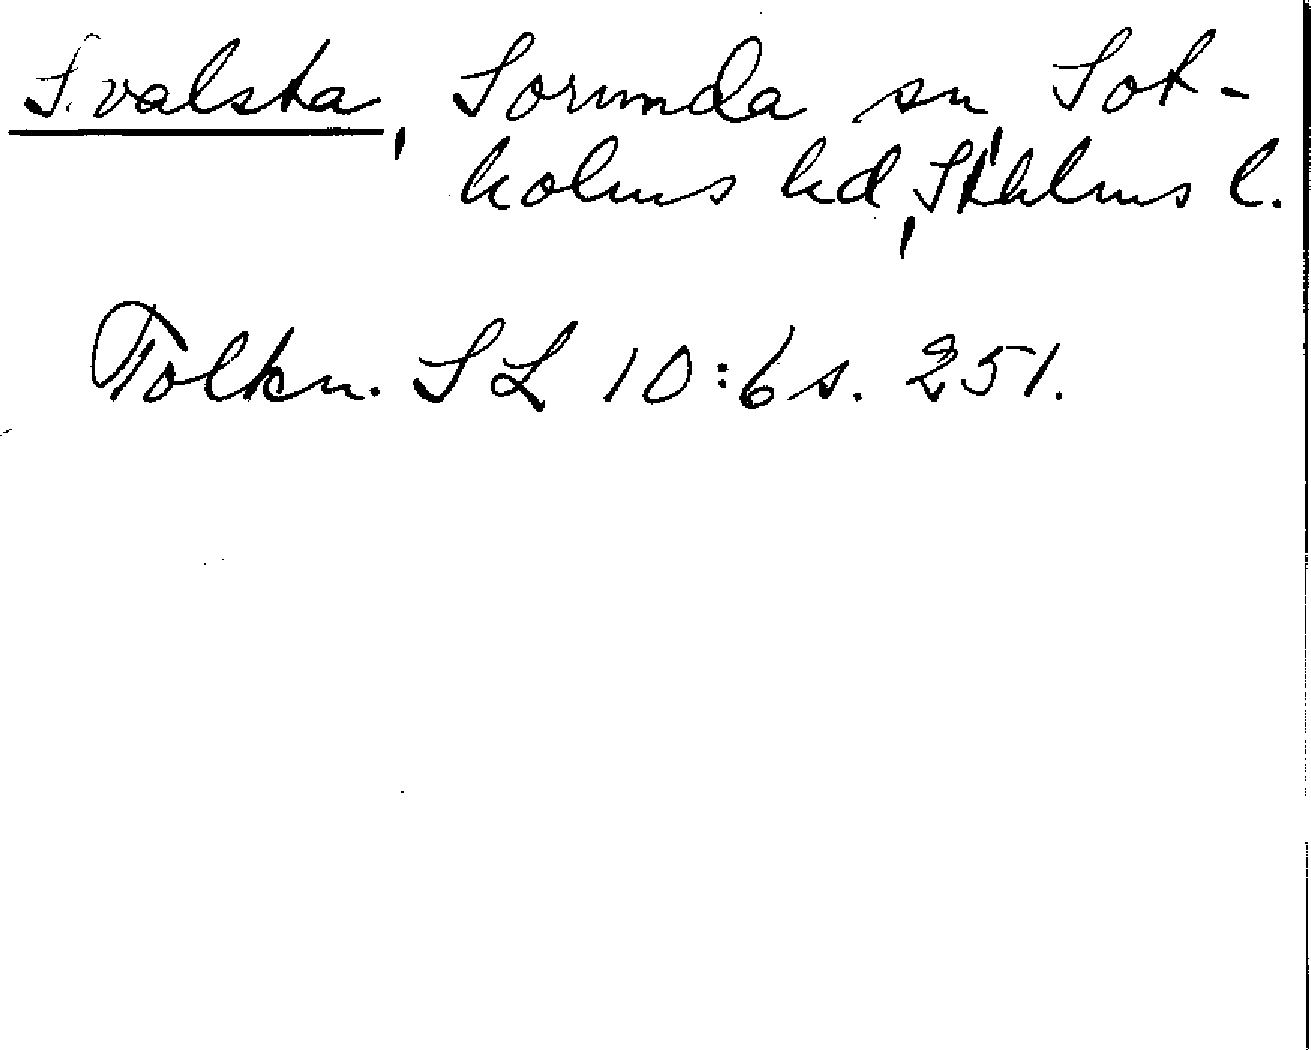 Svalsta, Sorunda sn, Sot-
holms hd, Sthlms l.
Tolkn. SL 10:6 s. 251.